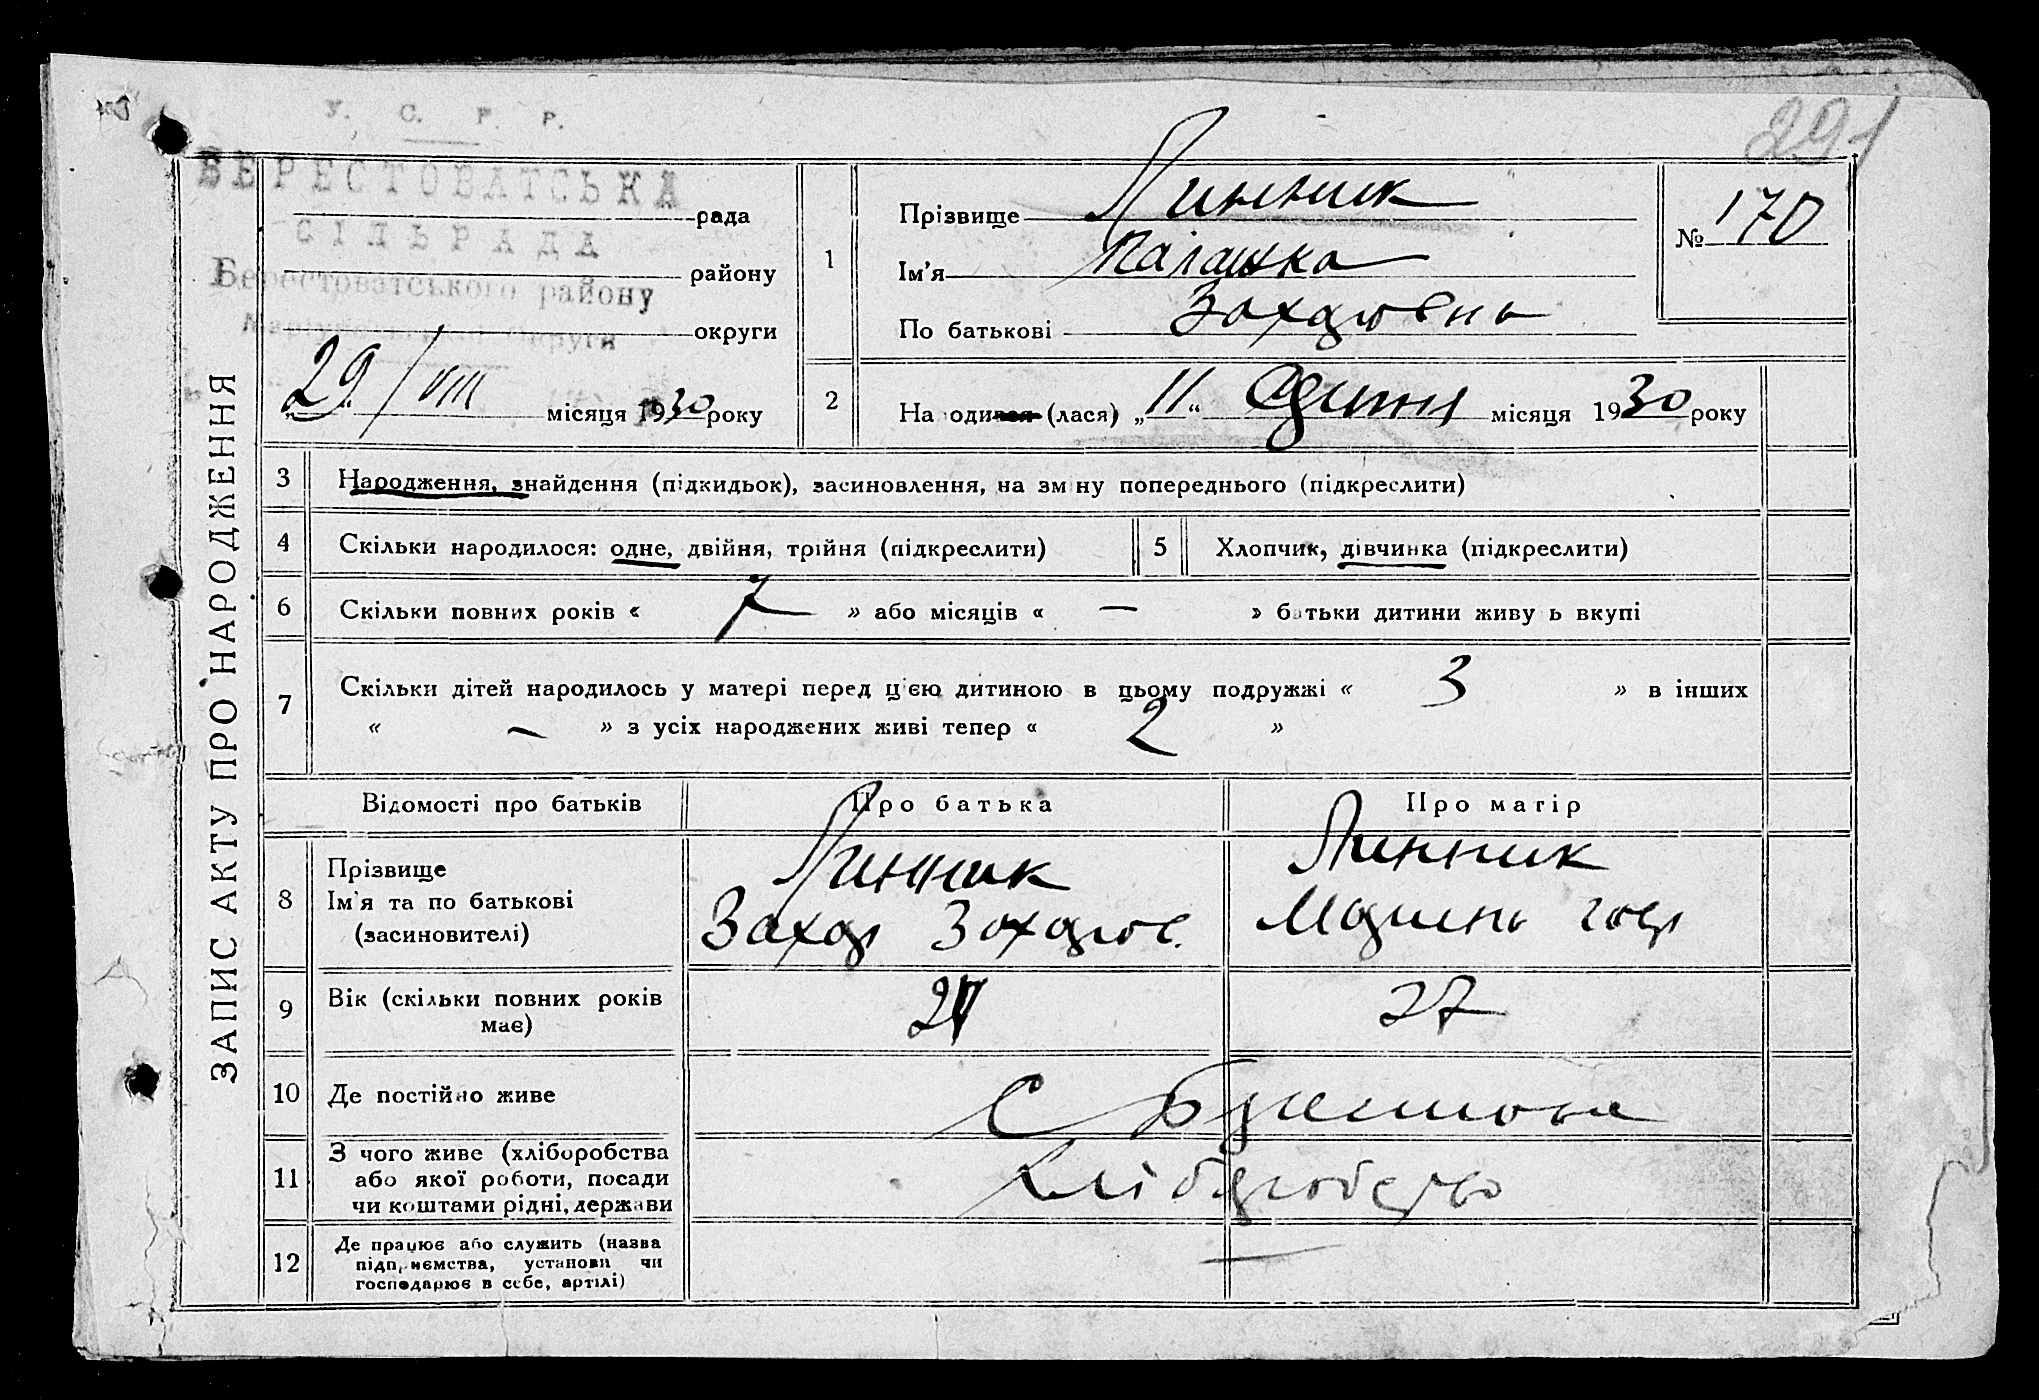 У. С. Р. Р.
291
БЕРЕСТОВАТСЬКА
рада
СІЛЬРАДА
району
Берестоватського району
округи
округи
29/VIII місяця 1930 року
ЗАПИС АКТУ ПРО НАРОДЖЕННЯ
1
Прізвище Линник
Ім'я Палашка
По батькові Захаровна
№ 170
2
На одився (лася) „11“ Серпня місяця 1930 року
3 Народження, знайдення (підкидьок), засиновлення, на зміну попереднього (підкреслити)
4 Скільки народилося: одне, двійня, трійня (підкреслити)
5 Хлопчик, дівчинка (підкреслити)
6 Скільки повних років « 7 » або місяців « — » батьки дитини живу ь вкупі
7 Скільки дітей народилось у матері перед цією дитиною в цьому подружжі « 3 » в інших
« — » з усіх народжених живі тепер « 2 »
Відомості про батьків Про батька Про матір
8 Прізвище
Ім'я та по батькові
(засиновителі)
Линник
Захар Захаров.
Линник
9 Вік (скільки повних років
має)
27
27
10 Де постійно живе
с Берестова
11 З чого живе (хліборобства
або якої роботи, посади
чи коштами рідні, держави
хліборобство
12 Де працює або служить (назва
підприємства, установи чи
господарює в себе, артілі)
—